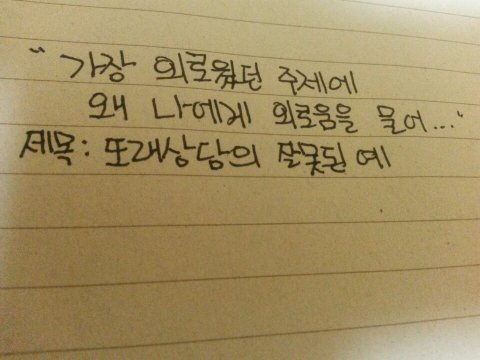 “가장 외로웠던 주제에
왜 나에게 외로움을 물어..."
제목: 또래상담의 잘못된 예